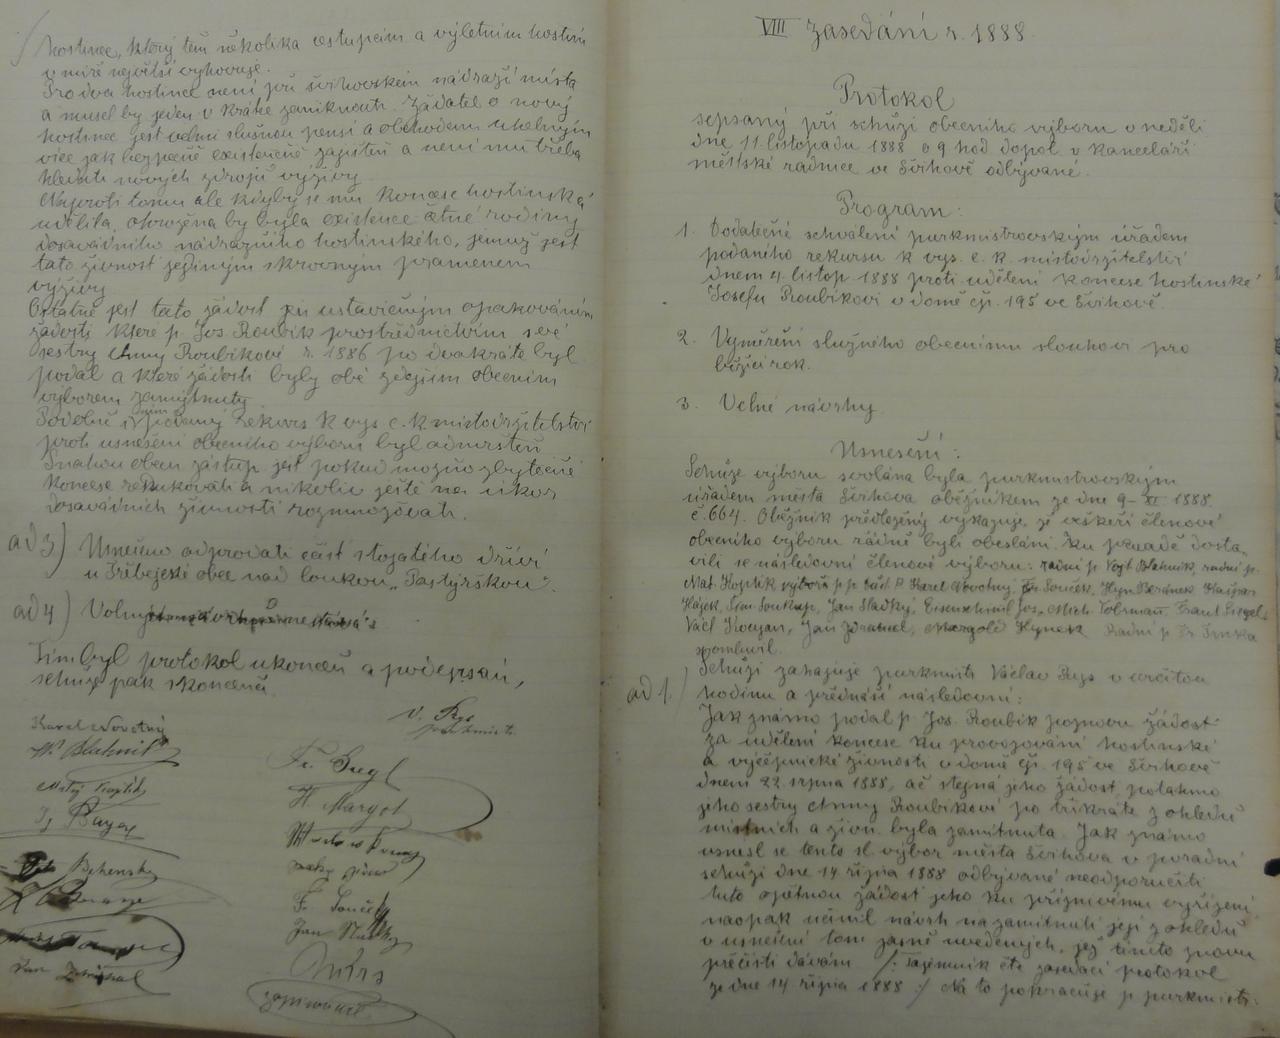 hostinec, který těm několika cestujícím a výletním hostím
v míře největší vyhovuje.
Pro dva hostince není při švihovském nádraží místa
a musel by jeden v krátce zaniknouti. Žadatel o nový
hostinec jest velmi slušnou pensí a obchodem uhelným
více jak bezpečně existenčně zajištěn a není mu třeba
hledati nových zdrojů výživy.
Naproti tomu ale kdyby se mu koncese hostinská
udělila, ohrožena by byla existence četné rodiny
dosavádního nádražního hostinského, jemuž jest
tato živnost jediným skrovným pramenem
výživy.
Ostatně jest tato žádost jen ustavičným opakováním
žádosti které p. Jos. Roubík prostřednictvím své
sestry Anny Roubíkové r. 1886 po dvakráte byl
podal a které žádosti byly obě zdejším obecním
výborem zamítnuty.
Podobně i jím podaný rekurs k vys. c. k. místodržitelství
proti usnešení obecního výboru byl odmrštěn
Snahou obec. zástup. jest pokud možno zbytečné
koncese redukovati a nikoliv ještě na úkor
dosavádních živností rozmnožovati.
ad 3) Usnešeno odprodati část stojatého dříví
u Třebýcké obce nad loukou „Pastýřskou".
ad 4) Volný
Tím byl protokol ukončen a podepsán,
schůze pak skončena.
V. Rys
purkmistr
Karel Novotný
Fr. Siegl
Matěj Kojtík
H. Margol
Fr. Souček
Jan
Jan
zapisovatel
VIII zasedání r. 1888.
Protokol
sepsaný při schůzi obecního výboru v neděli
dne 11. listopadu 1888 o 9 hod dopol. v kanceláři
městské radnice ve Švihově odbývané.
Program:
1. Dodatečné schválení purkmistrovským úřadem
podaného rekursu k vys. c. k. místodržitelství
dnem 4. listop 1888 proti udělení koncese hostinské
Josefu Roubíkovi v domě čp. 195 ve Švihově.
2. Vyměření služného obecnímu slouhovi pro
běžící rok.
3. Volné návrhy.
Usnešení:
Schůze výboru svolána byla purkmistrovským
úřadem města Švihova oběžníkem ze dne 9– XI. 1888.
č. 664. Oběžník předložený vykazuje, že veškeří členové
obecního výboru řádně byli obesláni. Ku poradě dosta-
vili se následovní členové výboru: radní p. Vojt. Blahník, radní p.
Mat. Kojtík výboři p. p. Karel Novotný, Fr. Souček, Hyn. Beránek, Kašpar
Hájek, Sim. Soukup, Jan Sladký, Eisenschiml Jos., Mich. Tolrman, Siegel,
Václ. Kougan, Jan Zdráhal, Margold Hynek Radní p. Fr. Trnka
omluvil.
ad 1.) Schůzi zahajuje purkmistr Václav Rys v určitou
hodinu a přednáší následovní:
Jak známo podal p. Jos. Roubík poznovu žádost
za udělení koncese ku provozování hostinské
a výčepnické živnosti v domě čp. 195 ve Švihově
dnem 22. srpna 1888, ač stejná jeho žádost potahmo
jeho sestry Anny Roubíkové po třikráte z ohledů
místních a živn. byla zamítnuta. Jak známo
usnesl se tento sl. výbor města Švihova v poradní
schůzi dne 14 října 1888 odbývané neodporučiti
tuto opětnou žádost jeho ku příznivému vyřízení
naopak učinil návrh na zamítnutí její z ohledů
v usnešení tom jasně uvedených, jež tímto znovu
přečísti dávám /: Tajemník čte zasedací protokol
ze dne 14 října 1888 :/ Na to pokračuje p. purkmistr: